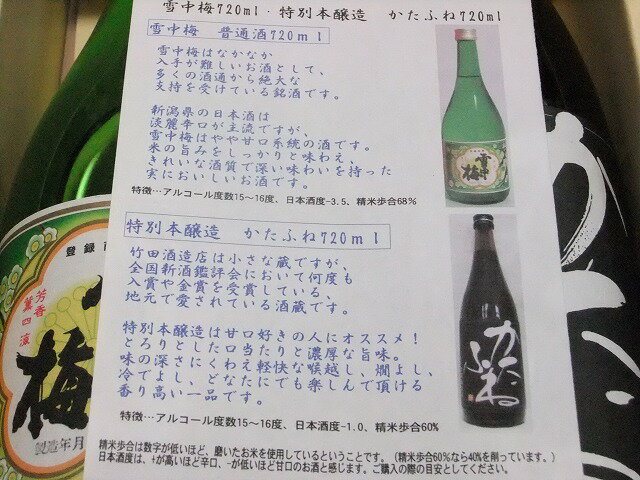 雪中梅720ml・特別本醸造 かたふね720ml
雪中梅 普通酒720ml
雪中梅はなかなか
入手が難しいお酒として、
多くの酒通から絶大な
支持を受けている銘酒です。
新潟県の日本酒は
淡麗辛口が主流ですが、
雪中梅はやや甘口系統の酒です。
米の旨みをしっかりと味わえ、
きれいな酒質で深い味わいを持った
実においしいお酒です。
特徴…アルコール度数15～16度、日本酒度-3.5、精米歩合68%
特別本醸造 かたふね720ml
竹田酒造店は小さな蔵ですが、
全国新酒鑑評会において何度も
入賞や金賞を受賞している、
地元で愛されている酒蔵です。
特別本醸造は甘口好きの人にオススメ！
とろりとした口当たりと濃厚な旨味。
味の深さにくわえ軽快な喉越し、燗よし、
冷でよし、どなたにでも楽しんで頂ける
香り高い一品です。
特徴…アルコール度数15～16度、日本酒度-1.0、精米歩合60%
精米歩合は数字が低いほど、磨いたお米を使用しているということです。（精米歩合60%なら40%を削っています。）
日本酒度は、+が高いほど辛口、-が低いほど甘口のお酒と感じます。ご購入の際の目安としてください。
雪中梅
かたふね
登録
芳香
梅
製造年月